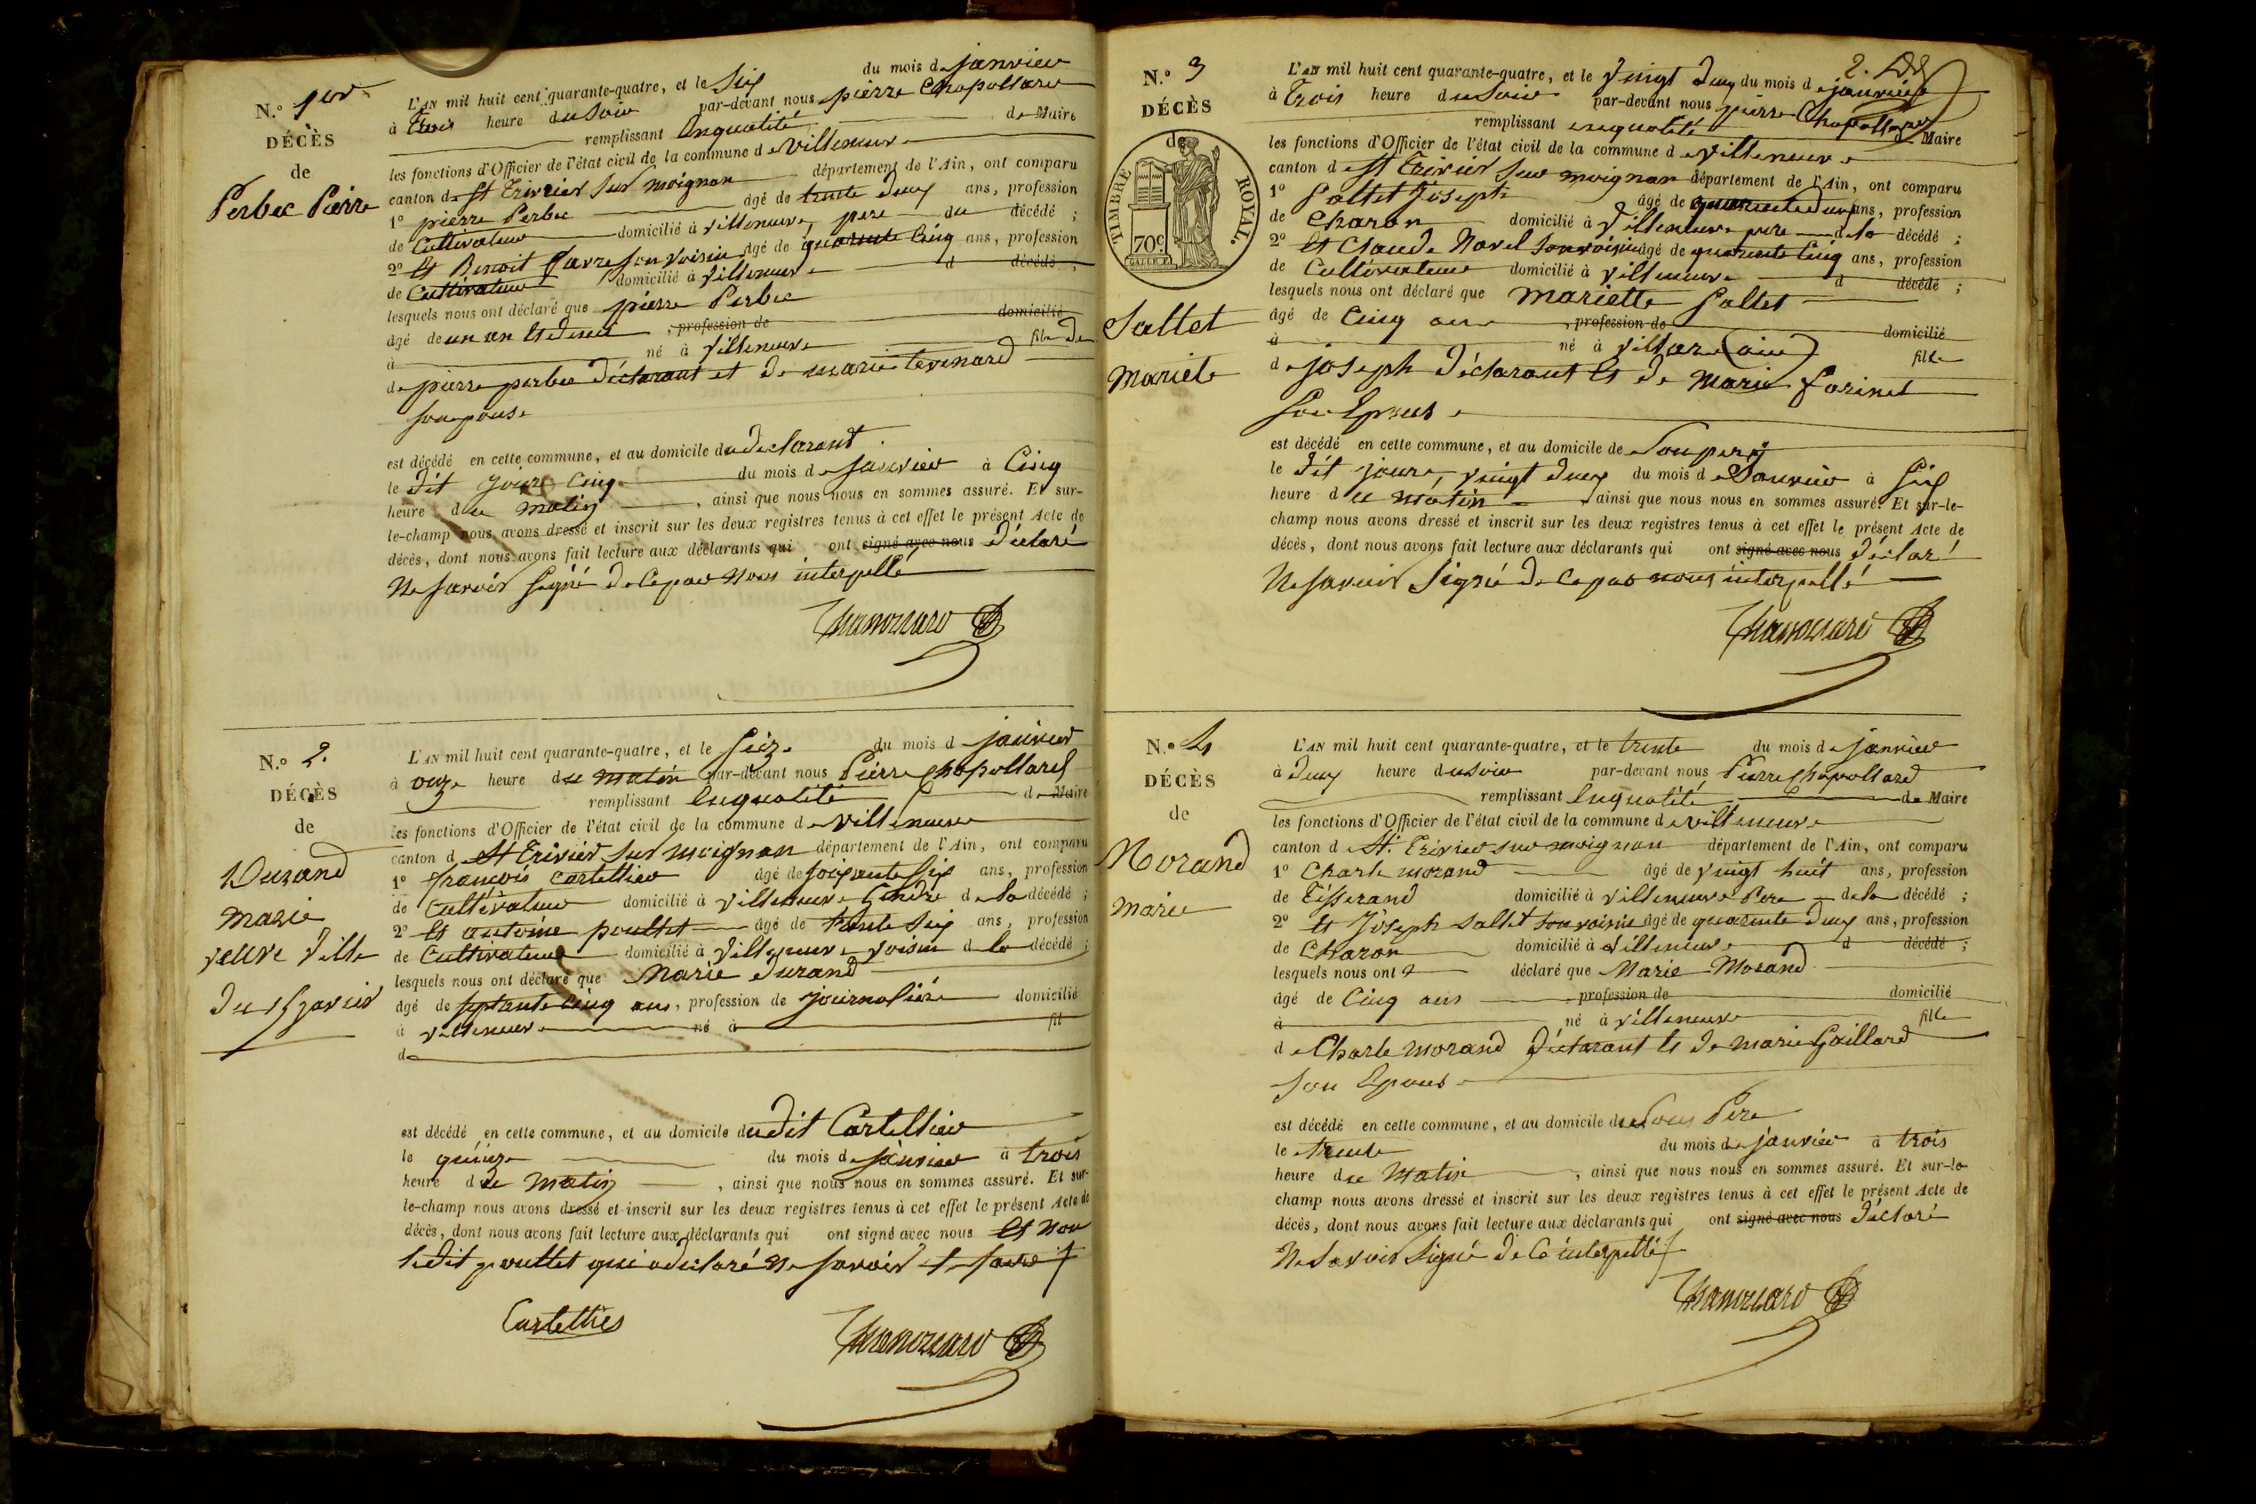 N.o 1er
DÉCÈS
de
Perbec Pierre
L'AN mil huit cent quarante-quatre, et le Six du mois de janvier
à Trois heure du Soir par-devant nous pierre Chapollard
remplissant Enqualité de Maire
les fonctions d'Officier de l'état civil de la commune de villeneuve
canton de St Trivier sur moignan département de l'Ain, ont comparu
1o pierre Perbec âgé de trente deux ans, profession
de Cultivateur domicilié à villeneuve, pere du décédé ;
2o Et Benoit favre son voisin âgé de quarente Cinq ans, profession
de Cultivateur domicilié à villeneuve d décédé ;
lesquels nous ont déclaré que pierre Perbec
âgé de un an et demi , profession de domicilié
à né à villeneuve fils de
de pierre perbec déclarant et de marie tevenard
son epouse
est décédé en cette commune, et au domicile du declarant
le dit jour Cinq du mois de Janvier à Cinq
heure du matin , ainsi que nous nous en sommes assuré. Et sur-
le-champ nous avons dressé et inscrit sur les deux registres tenus à cet effet le présent Acte de
décès, dont nous avons fait lecture aux déclarants qui ont signé avec nous déclaré
Ne Savoir Signé de Ce par Nous interpellé
N.o 2
DÉCÈS
de
Durand
marie
veuve Ville
du 15 janvier
L'AN mil huit cent quarante-quatre, et le Seize du mois d janvier
à onze heure du matin par-devant nous Pierre Chapollard
remplissant Enqualité de Maire
les fonctions d'Officier de l'état civil de la commune de villeneuve
canton d St Trivier sur moignan département de l'Ain, ont comparu
1o françois Cartellier âgé de soixante Six ans, profession
de Cultivateur domicilié à villeneuve Gendre de la décédé ;
2o Et antoine poullet âgé de trente Six ans, profession
de Cultivateur domicilié à villeneuve voisin d la décédé ;
lesquels nous ont déclaré que Marie durand
âgé de septante Cinq ans, profession de journaliére domicilié
à villeneuve né à fil
d
est décédé en cette commune, et au domicile dudit Cartellier
le quinze du mois de janvier à trois
heure d du matin , ainsi que nous nous en sommes assuré. Et sur-
le-champ nous avons dressé et inscrit sur les deux registres tenus à cet effet le présent Acte de
décès, dont nous avons fait lecture aux déclarants qui ont signé avec nous Et Non
le dit poullet qui a declaré Ne Savoir le faire
Cartellier
N.o 3
DÉCÈS
de
TIMBRE ROYAL.
70c
Saltet
Mariete
2.
L'AN mil huit cent quarante-quatre, et le vingt deux du mois de janvier
à Trois heure du Soir par-devant nous pierre Chapollard
remplissant enqualité d Maire
les fonctions d'Officier de l'état civil de la commune de villeneuve
canton de St Trivier sur moignan département de l'Ain, ont comparu
1o Saltet Joseph âgé de quarente deux ans, profession
de Charon domicilié à Villeneuve pere de la décédé ;
2o Et Claude Novel son voisin âgé de quarente Cinq ans, profession
de Cultivateur domicilié à villeneuve d décédé ;
lesquels nous ont déclaré que Mariette Saltet
âgé de Cinq ans , profession de domicilié
à né à villars (ain) fille
de joseph déclarant Et de Marie farinet
Son Epouse
est décédé en cette commune, et au domicile de Son pere
le dit jour, vingt deux du mois de Janvier à Six
heure du matin , ainsi que nous nous en sommes assuré. Et sur-le-
champ nous avons dressé et inscrit sur les deux registres tenus à cet effet le présent Acte de
décès, dont nous avons fait lecture aux déclarants qui ont signé avec nous déclaré
Ne Savoir Signé de Ce par nous interpellé
N.o 4
DÉCÈS
de
Morand
marie
L'AN mil huit cent quarante-quatre, et le trente du mois de janvier
à deux heure du Soir par-devant nous Pierre Chapollard
remplissant Enqualité de Maire
les fonctions d'Officier de l'état civil de la commune de villeneuve
canton de St. Trivier sur moignan département de l'Ain, ont comparu
1o Charle morand âgé de vingt huit ans, profession
de Tisserand domicilié à villeneuve Pere de la décédé ;
2o Et Joseph Saltet son voisin âgé de quarente deux ans, profession
de Charon domicilié à villeneuve d décédé ;
lesquels nous ont déclaré que Marie Morand
âgé de Cinq ans , profession de domicilié
à né à villeneuve fille
de Charle morand déclarant Et de marie Gaillard
Son Epouse
est décédé en cette commune, et au domicile de Son Pere
le trente du mois de janvier à trois
heure du Matin , ainsi que nous nous en sommes assuré. Et sur-le-
champ nous avons dressé et inscrit sur les deux registres tenus à cet effet le présent Acte de
décès, dont nous avons fait lecture aux déclarants qui ont signé avec nous déclaré
Ne Savoir Signé de Ce interpellé